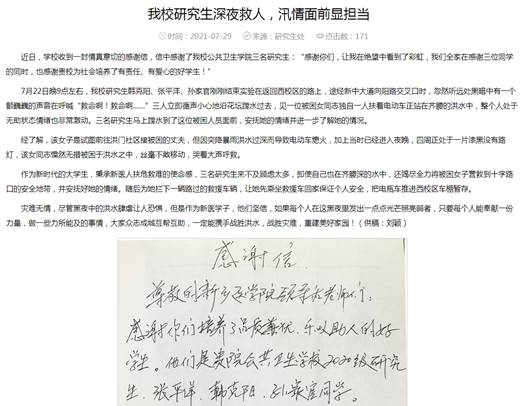 我校研究生深夜救人，汛情面前显担当
时间：2021-07-29 来源：研究生处 点击数：171
近日，学校收到一封情真意切的感谢信，信中感谢了我校公共卫生学院三名研究生：“感谢你们，让我在绝望中看到了彩虹，我们全家在感谢三位同学
的同时，也感谢贵校为社会培养了有责任、有爱心的好学生！”
7月22日晚9点左右，我校研究生韩克阳、张平洋、孙家官刚刚结束实验在返回西校区的路上，途经新中大道向阳路交叉口时，忽然听远处黑暗中有一个
颤巍巍的声音在呼喊“救命啊！救命啊......”三人立即循声小心地沿花坛蹚水过去，见一位被困女同志独自一人扶着电动车正站在齐腰的洪水中，整个人处于
无助状态情绪也非常激动。三名研究生马上蹚水到了这位被困人员面前，安抚她的情绪并进一步了解她的情况。
经了解，该女子是试图前往洪门社区接被困的丈夫，但因突降暴雨洪水过深而导致电动车熄火，加上当时已经进入夜晚，四周正处于一片漆黑没有路
灯，该女同志懵然无措被困于洪水之中，丝毫不敢移动，哭着大声呼救。
作为新时代的大学生，秉承新医人扶危救难的使命感，三名研究生来不及顾虑太多，即使自己也在齐腰深的水中，还竭尽全力将被困女子营救到十字路
口的安全地带，并安抚好她的情绪。随后为她拦下一辆路过的救援车辆，让她先乘坐救援车回家保证个人安全，把电瓶车推进西校区车棚暂存。
灾难无情，尽管黑夜中的洪水肆虐让人恐惧，但是作为新医学子，他们坚信，如果每个人在这黑夜里发出一点点光芒照亮弱者，只要每个人能奉献一份
力量，做一些力所能及的事情，大家众志成城互帮互助，一定能携手战胜洪水，战胜灾难，重建美好家园！（供稿：刘颖）
感谢信
尊敬的新乡医学院领导和老师们：
感谢你们培养了品质兼优、乐以助人的好
学生。他们是贵院公共卫生学校2020级研究
生、张平洋、韩克阳、孙家官同学。